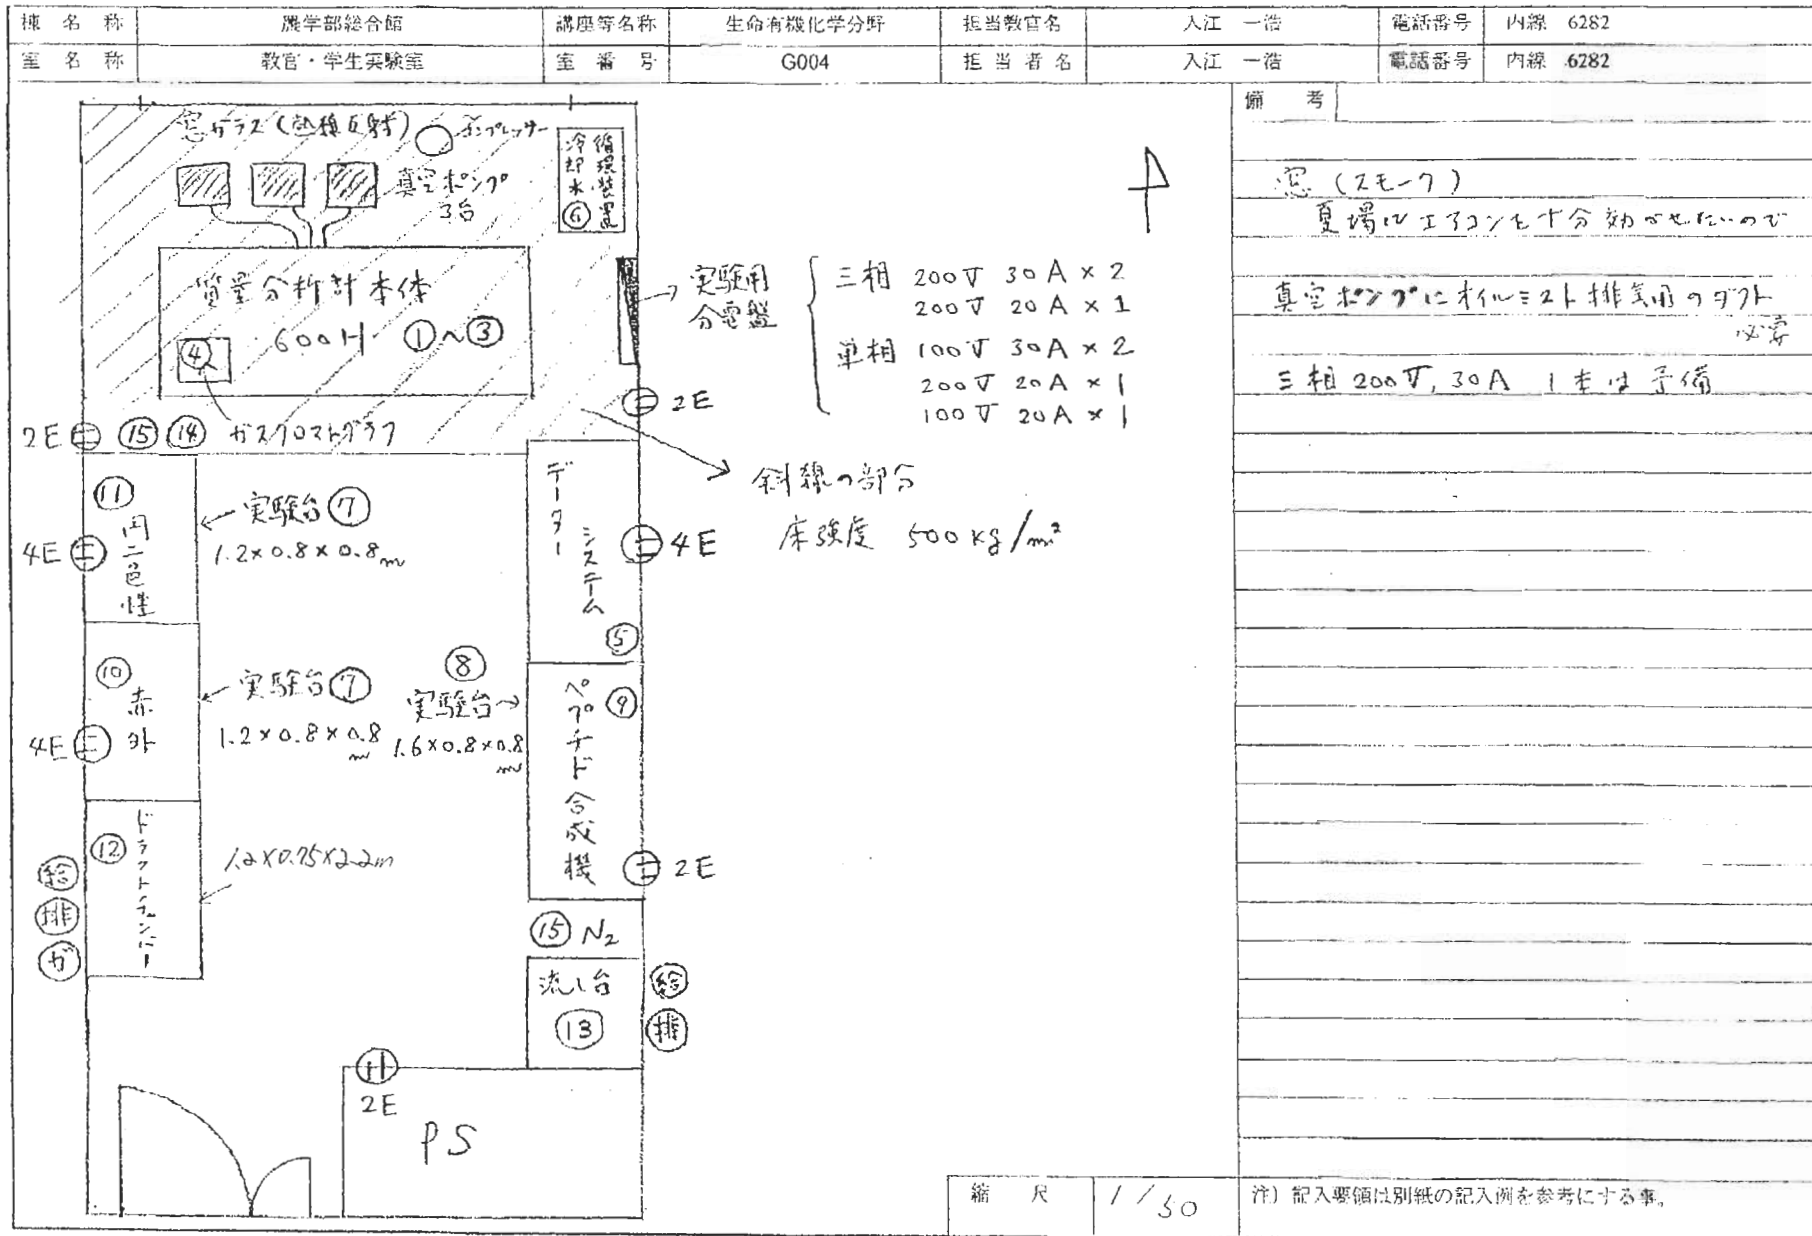 棟名称 農学部総合館 講座等名称 生命有機化学分野 担当教官名 入江 一浩 電話番号 内線 6282
室名称 教官・学生実験室 室番号 G004 担当者名 入江 一浩 電話番号 内線 6282
備考
窓ガラス(熱線反射)
コンプレッサー
冷却水循環装置
⑥
真空ポンプ
3台
質量分析計本体
600H ①~③
④
ガスクロマトグラフ
実験用
分電盤
三相 200V 30A×2
200V 20A×1
単相 100V 30A×2
200V 20A×1
100V 20A×1
2E
2E
⑮ ⑭
斜線の部分
床強度 500kg/m²
⑪
円二色性
4E
実験台⑦
1.2×0.8×0.8m
データーシステム
⑤
4E
⑩
赤外
4E
実験台⑦
1.2×0.8×0.8m
⑧
実験台
1.6×0.8×0.8m
⑨
ペプチド合成機
2E
⑫
ドラフトチャンバー
1.2×0.75×2.2m
給
排
ガ
⑮ N₂
流し台
⑬
給
排
2E
PS
窓(スモーク)
夏場はエアコンを十分効かせたいので
真空ポンプにオイルミスト排気用のダクト
必要
三相 200V, 30A 1本は予備
縮尺 1/50
注)記入要領は別紙の記入例を参考にする事。